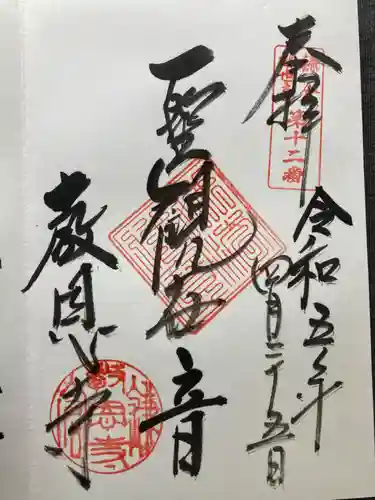 奉拝
第十二番
令和五年
四月二十五日
聖観世音
教恩寺
教恩寺